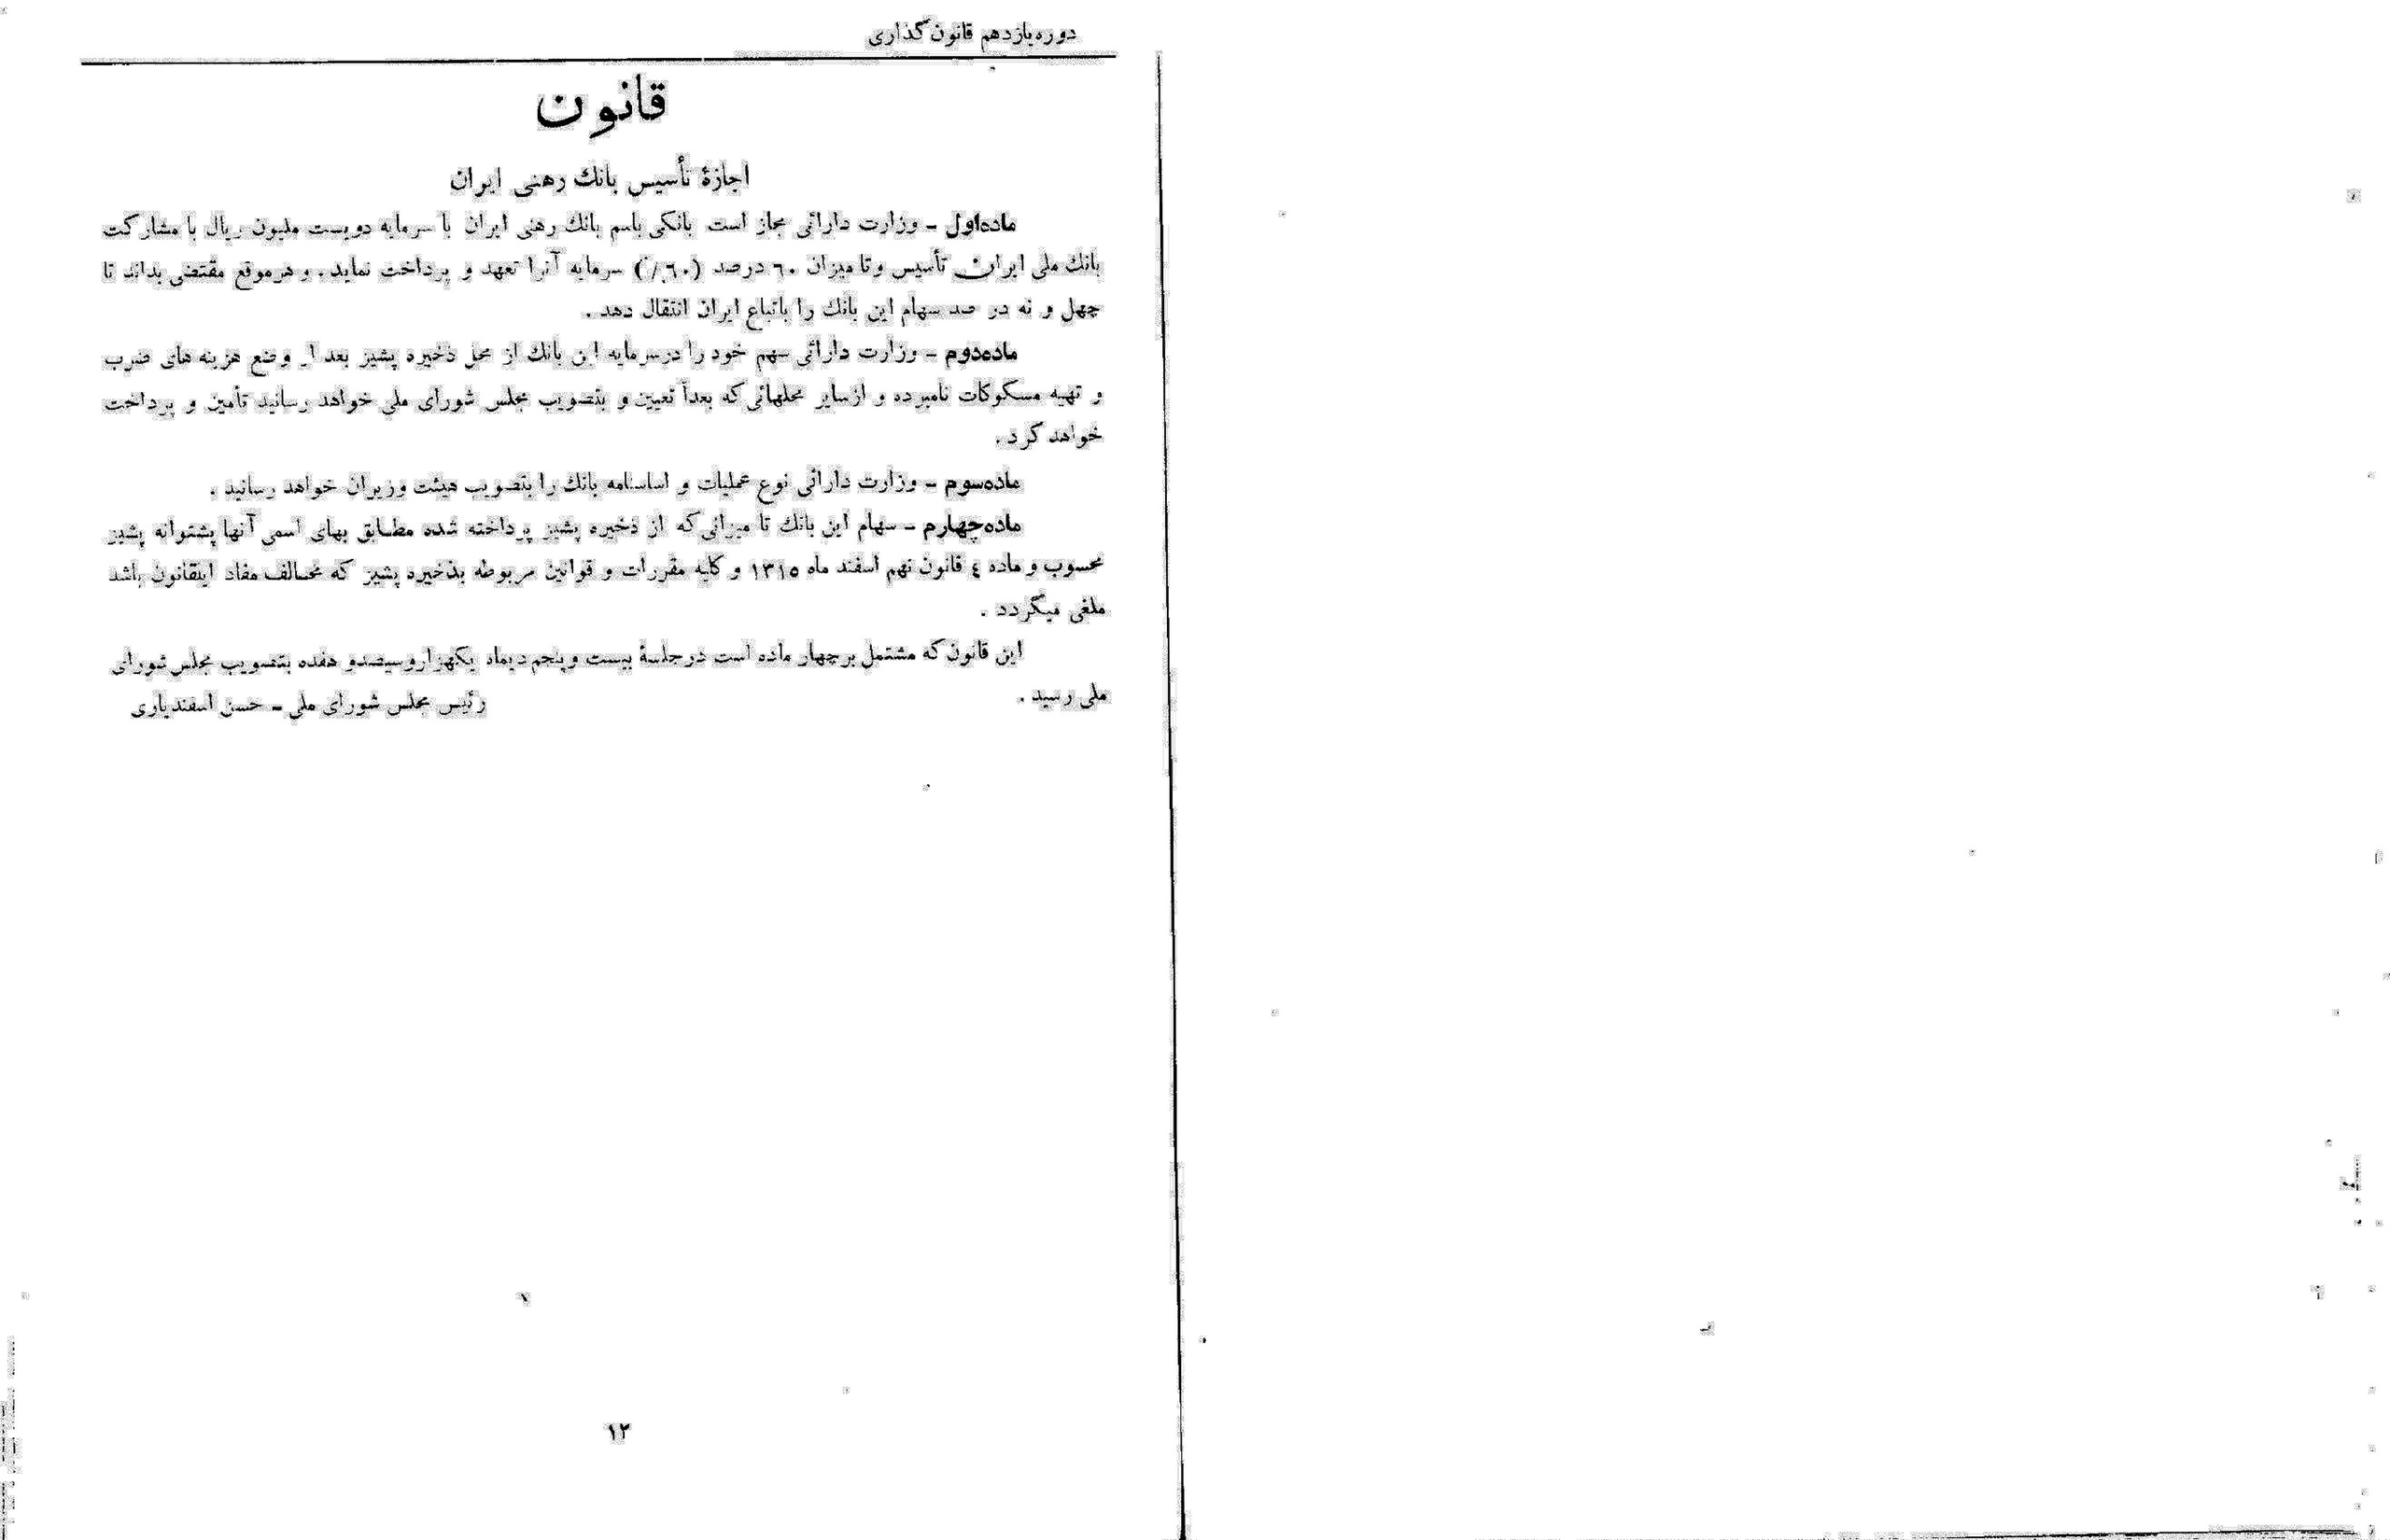 دوره یازدهم قانون گذاری
قانون
اجازۀ تأسیس بانك رهنی ایران
ماده اول ـ وزارت دارائی مجاز است بانکی باسم بانك رهنی ایران با سرمایه دویست ملیون ریال با مشارکت
بانك ملی ایران تأسیس و تا میزان ٦٠ درصد (٦٠٪) سرمایه آنرا تعهد و پرداخت نماید . و هر موقع مقتضی بداند تا
چهل و نه در صد سهام این بانك را باتباع ایران انتقال دهد .
ماده دوم ـ وزارت دارائی سهم خود را در سرمایه این بانك از محل ذخیره پشیز بعد از وضع هزینه های ضرب
و تهیه مسکوکات نامبرده و از سایر محلهائی که بعداً تعیین و بتصویب مجلس شورای ملی خواهد رسانید تأمین و پرداخت
خواهد کرد .
ماده سوم ـ وزارت دارائی نوع عملیات و اساسنامه بانك را بتصویب هیئت وزیران خواهد رسانید .
ماده چهارم ـ سهام این بانك تا میزانی که از ذخیره پشیز پرداخته شده مطابق بهای اسمی آنها پشتوانه پشیز
محسوب و ماده ٤ قانون نهم اسفند ماه ١٣١٥ و کلیه مقررات و قوانین مربوطه بذخیره پشیز که مخالف مفاد اینقانون باشد
ملغی میگردد .
این قانون که مشتمل بر چهار ماده است در جلسۀ بیست و پنجم دیماه یکهزار و سیصد و هفده بتصویب مجلس شورای
ملی رسید .
رئیس مجلس شورای ملی ـ حسن اسفندیاری
١٢